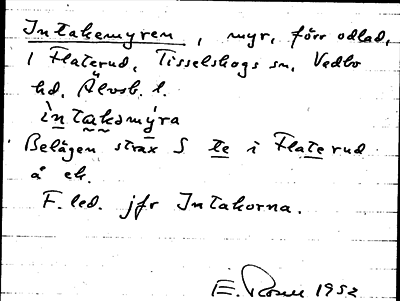 Intakemyren, myr, förr odlad,
i Flaterud, Tisselskogs sn, Vedbo
hd, Älvsb. l.
ìntakəmy̌ra
Belägen strax S te i Flaterud
å ek.
F. led. jfr Intakorna.
E. 1952